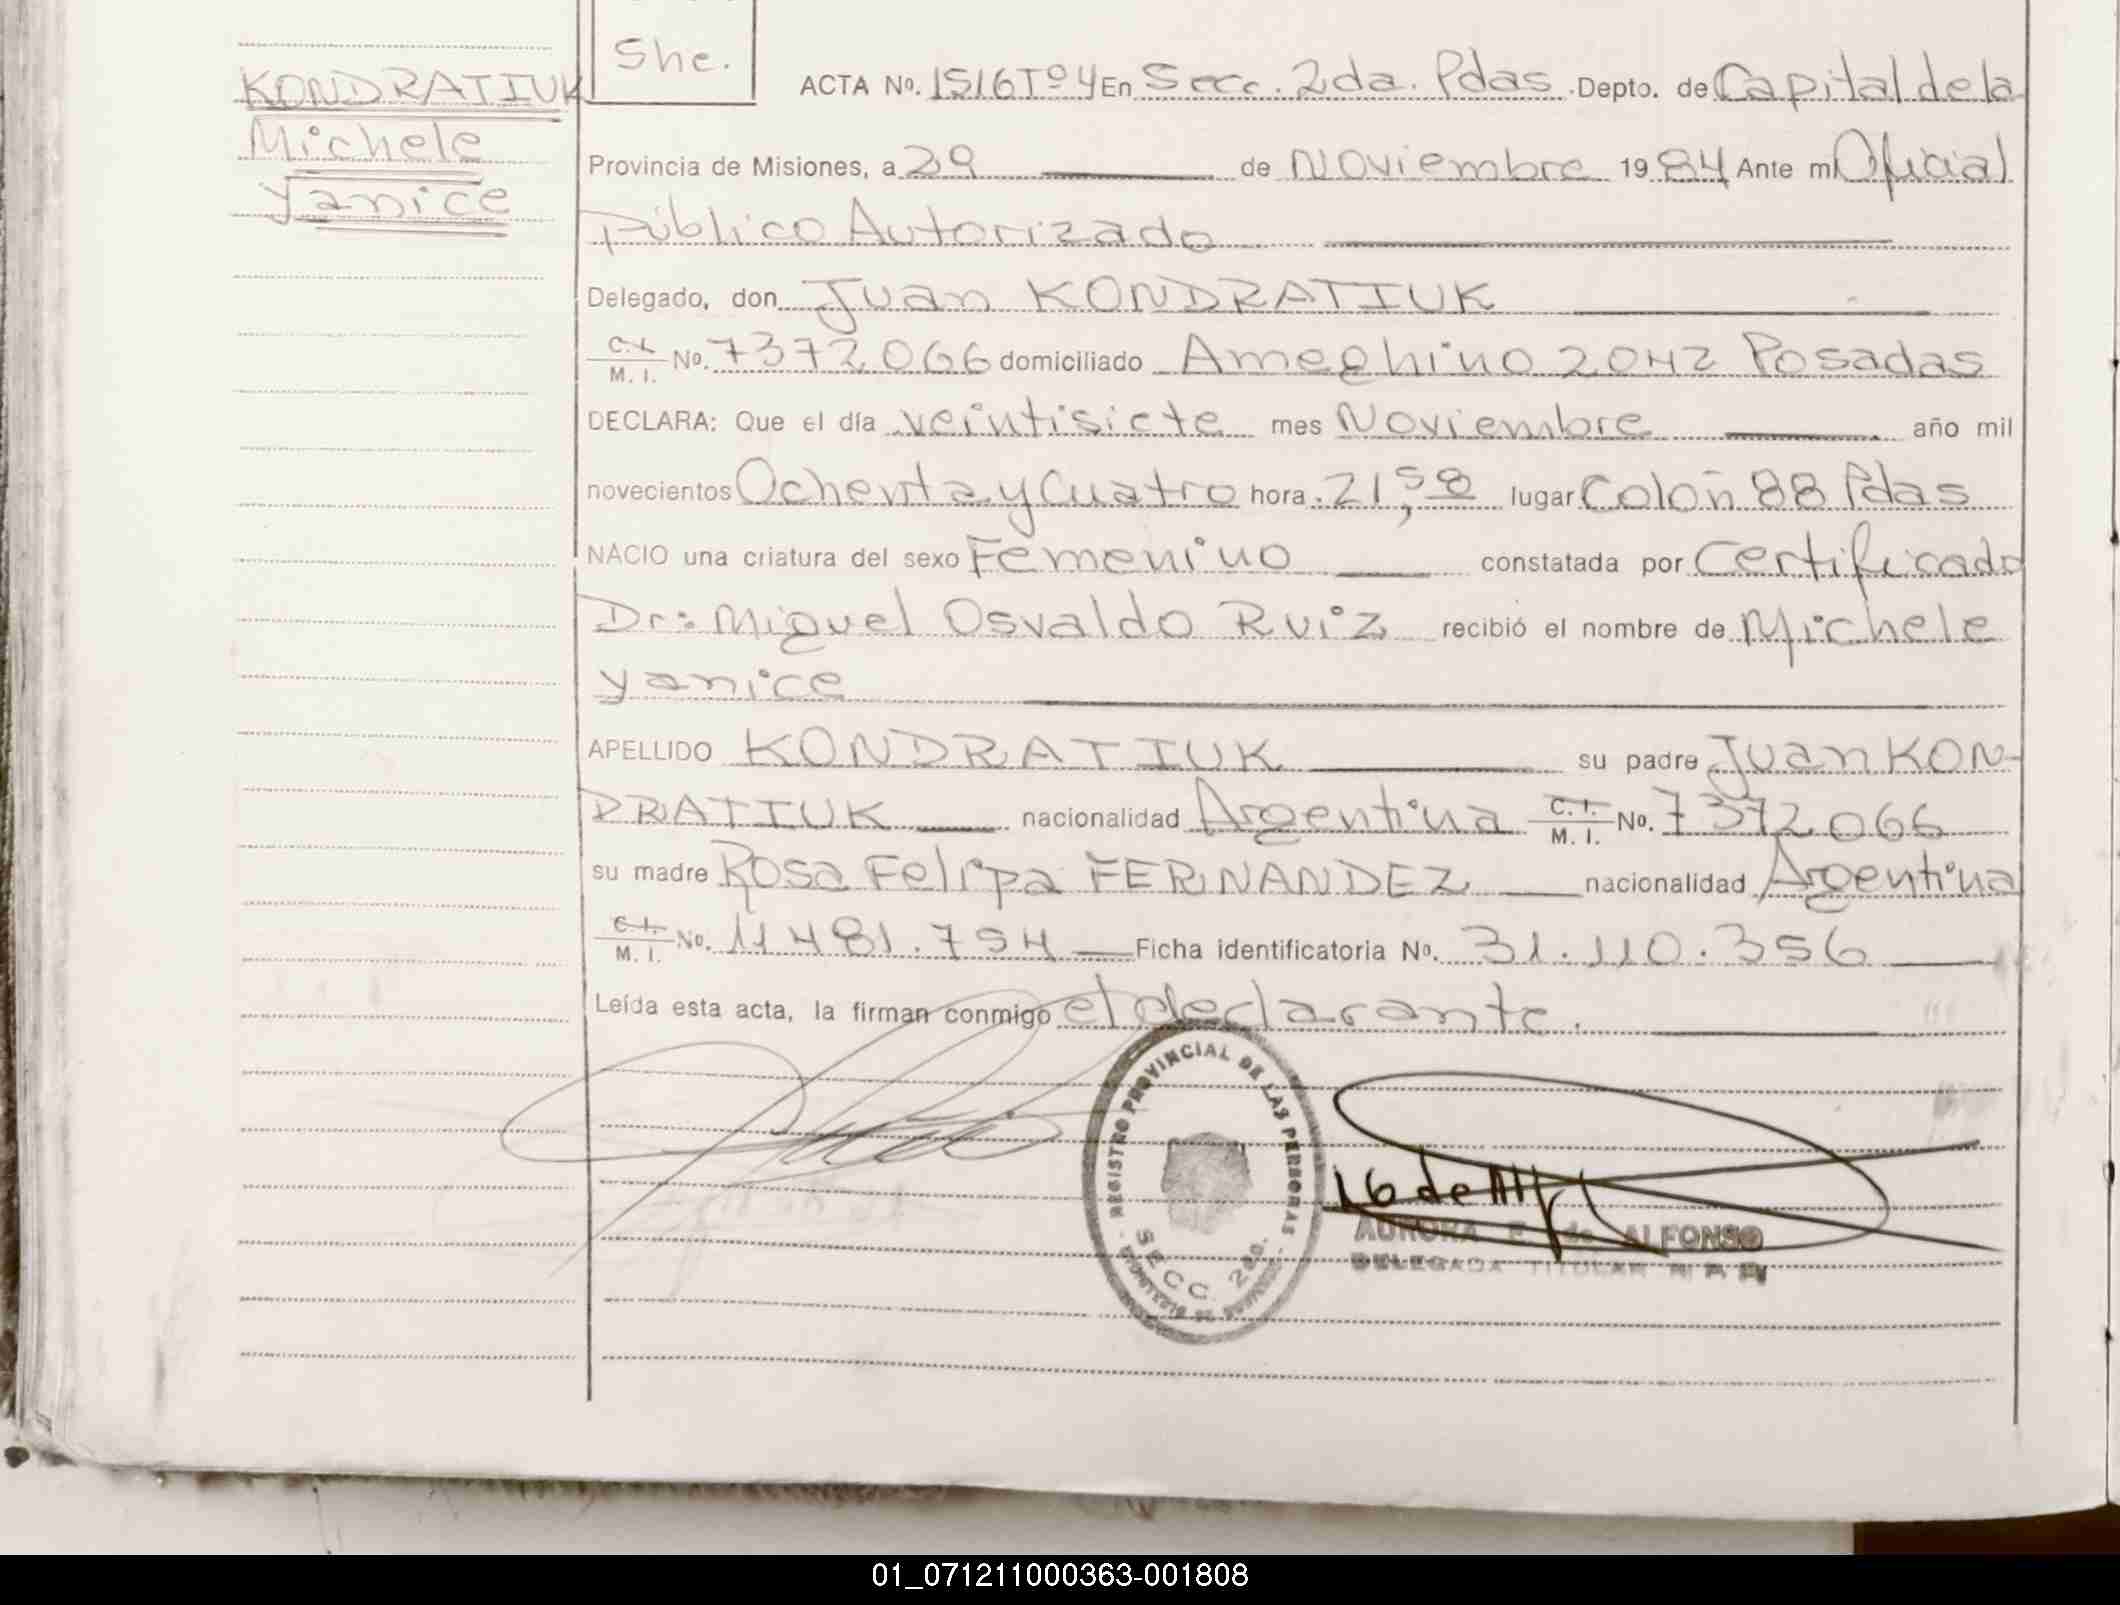 She.
KONDRATIUK
Michele
Yanice
ACTA No. 1516 Tº 4 En Secc. 2da. Pdas. Depto. de Capital de la
Provincia de Misiones, a 29 de Noviembre 1984 Ante mí Oficial
Público Autorizado
Delegado, don Juan KONDRATIUK
C.I. M. I. No. 7372066 domiciliado Ameghino 2042 Posadas
DECLARA: Que el día veintisiete mes Noviembre año mil
novecientos Ochenta y Cuatro hora 21,58 lugar Colón 88 Pdas
NACIO una criatura del sexo Femenino constatada por Certificado
Dr: Miguel Osvaldo Ruiz recibió el nombre de Michele
Yanice
APELLIDO KONDRATIUK su padre Juan KON-
DRATIUK nacionalidad Argentina C. I. M. I. No. 7372066
su madre Rosa Felipa FERNANDEZ nacionalidad Argentina
C. I. M. I. No. 11481.754 Ficha identificatoria No. 31.110.356
Leída esta acta, la firman conmigo el declarante.
REGISTRO PROVINCIAL DE LAS PERSONAS
SECC. 2da.
AURORA F. de ALFONSO
DELEGADA TITULAR
01_071211000363-001808